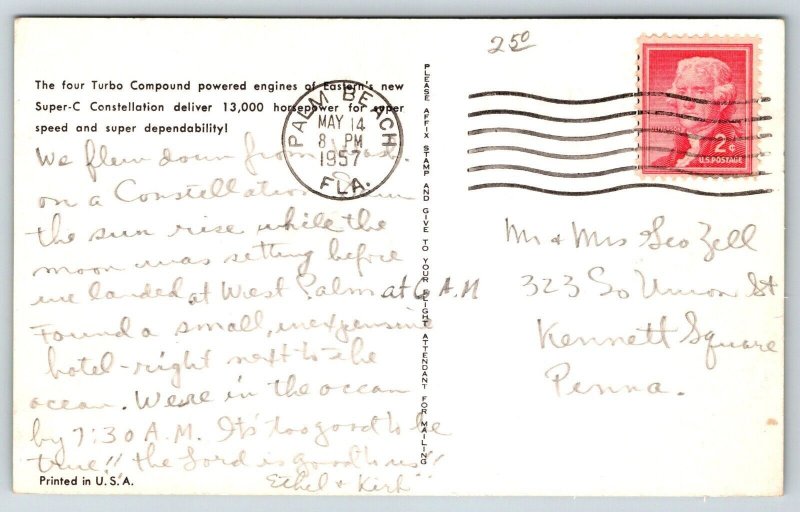 The four Turbo Compound powered engines of Eastern's new
Super-C Constellation deliver 13,000 horsepower for super
speed and super dependability!
We flew down from
on a Constellation
the sun rise while the
moon was setting before
we landed at West Palm at 6 A.M
Found a small, inexpensive
hotel-right next to the
ocean. Were in the ocean
by 7:30 A.M. Its too good to be
true!! the Lord is good to us!!
Ethel & Kirk
Printed in U.S.A.
PLEASE AFFIX STAMP AND GIVE TO YOUR FLIGHT ATTENDANT FOR MAILING
PALM BEACH
MAY 14
8 PM
1957
FLA.
250
2¢
U.S. POSTAGE
Mr & Mrs Geo Zell
323 So Union St
Kennett Square
Penna.